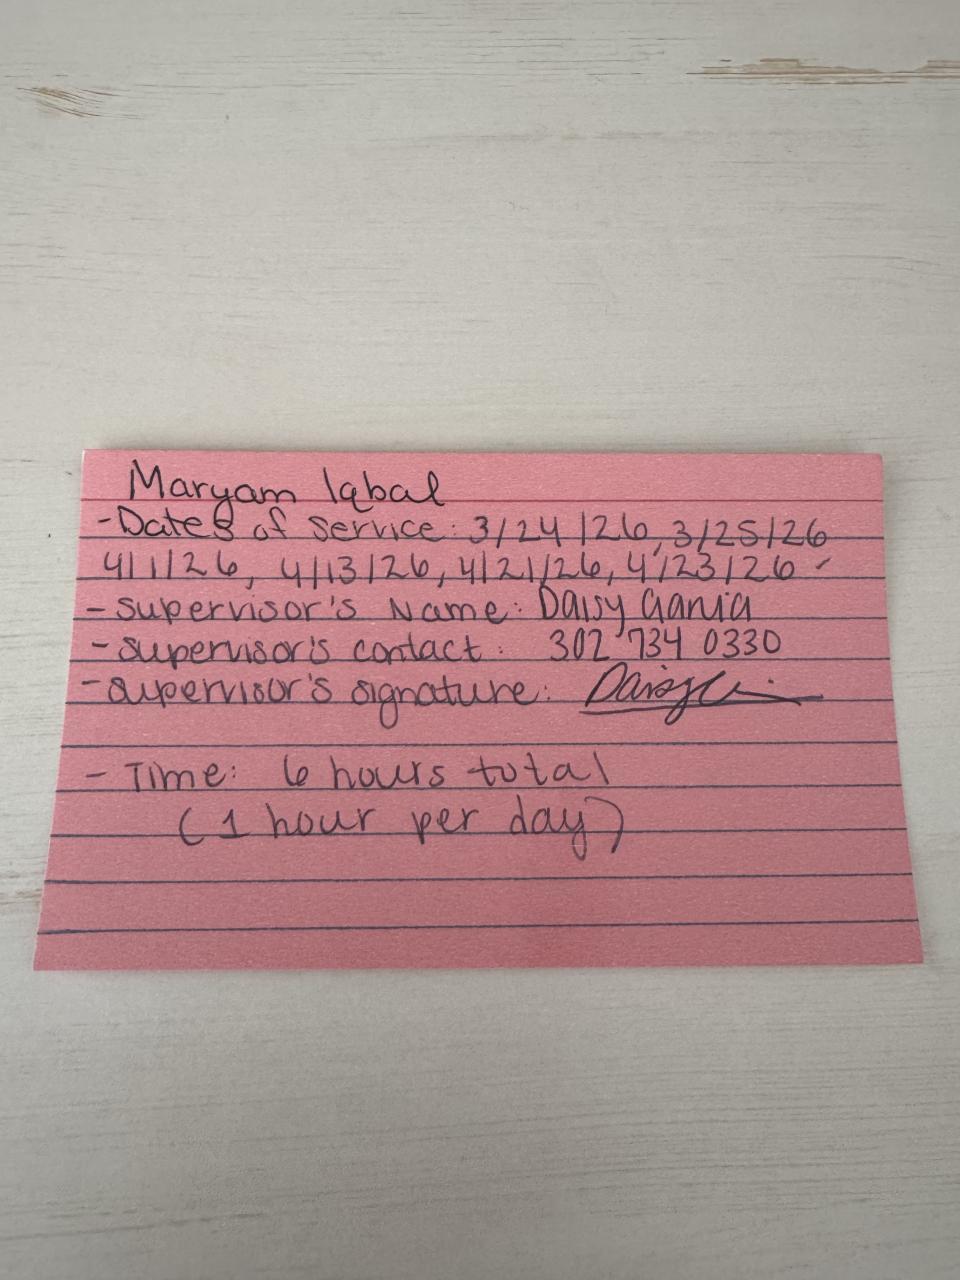 Maryam Iqbal
- Dates of service: 3/24/26, 3/25/26
4/1/26, 4/13/26, 4/21/26, 4/23/26
- Supervisor's Name: Daisy
- Supervisor's contact: 302 734 0330
- Supervisor's signature: Daisy
- Time: 6 hours total
(1 hour per day)